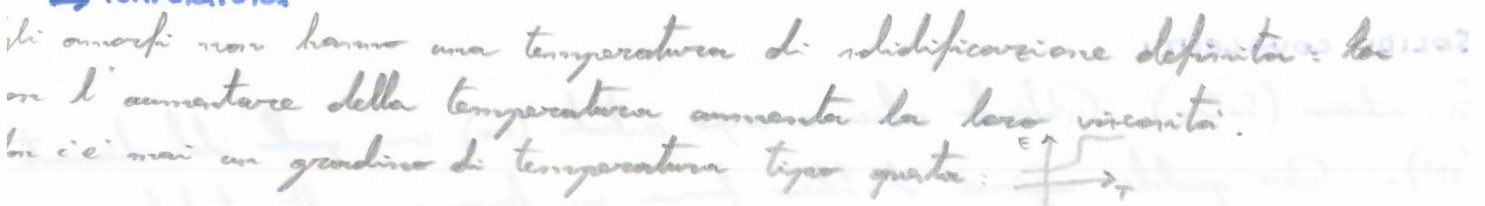 gli amorfi non hanno una temperatura di solidificazione definita: la
l'aumentare della temperatura aumenta la loro viscosità.
c'è mai un gradino di temperatura tipo questa:
E
T